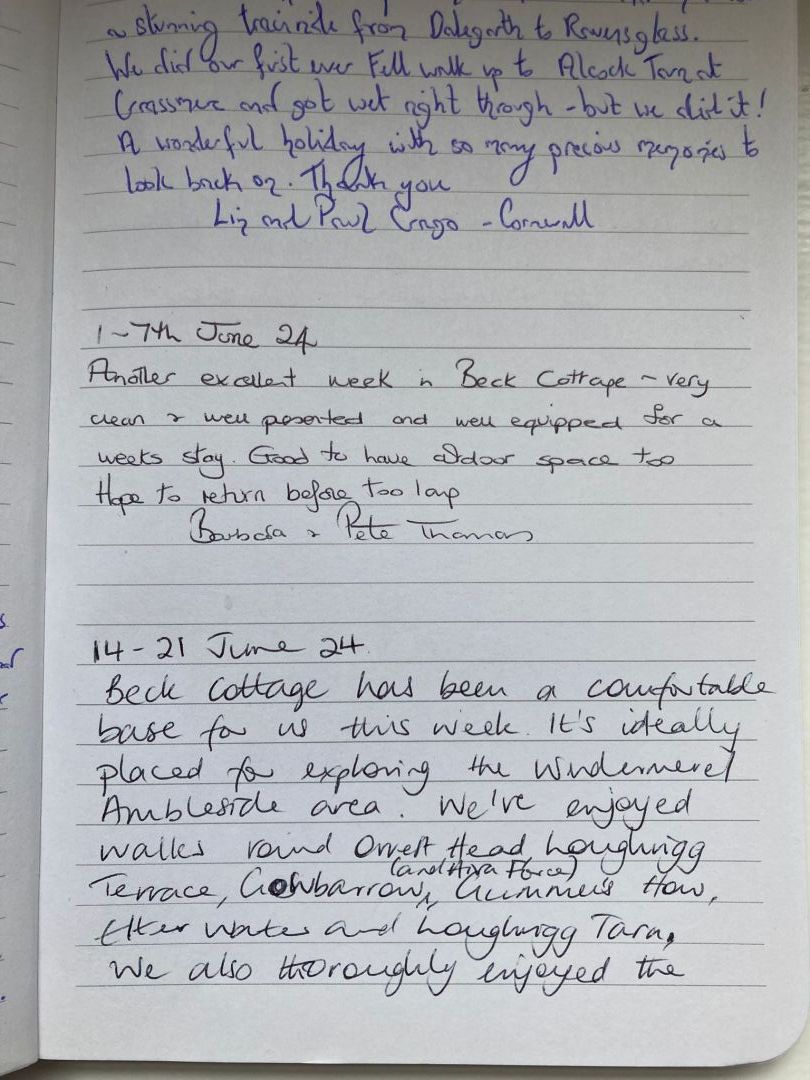 a stunning trainride from Dalegarth to Ravensglass.
We did our first ever Fell walk up to Alcock Tarn at
Grassmere and got wet right through - but we did it!
A wonderful holiday with so many precious memories to
look back on. Thank you
Liz and Paul - Cornwall
1-7th June 24
Another excellent week in Beck Cottage - very
clean & well presented and well equipped for a
weeks stay. Good to have outdoor space too
Hope to return before too long
Barbara & Pete Thomas
14-21 June 24.
Beck Cottage has been a comfortable
base for us this week. It's ideally
placed for exploring the Windermere/
Ambleside area. We've enjoyed
walks round Orrest Head, Loughrigg
(and Aira Force)
Terrace, Gowbarrow, Gummer's How,
Elter Water and Loughrigg Tarn.
We also thoroughly enjoyed the